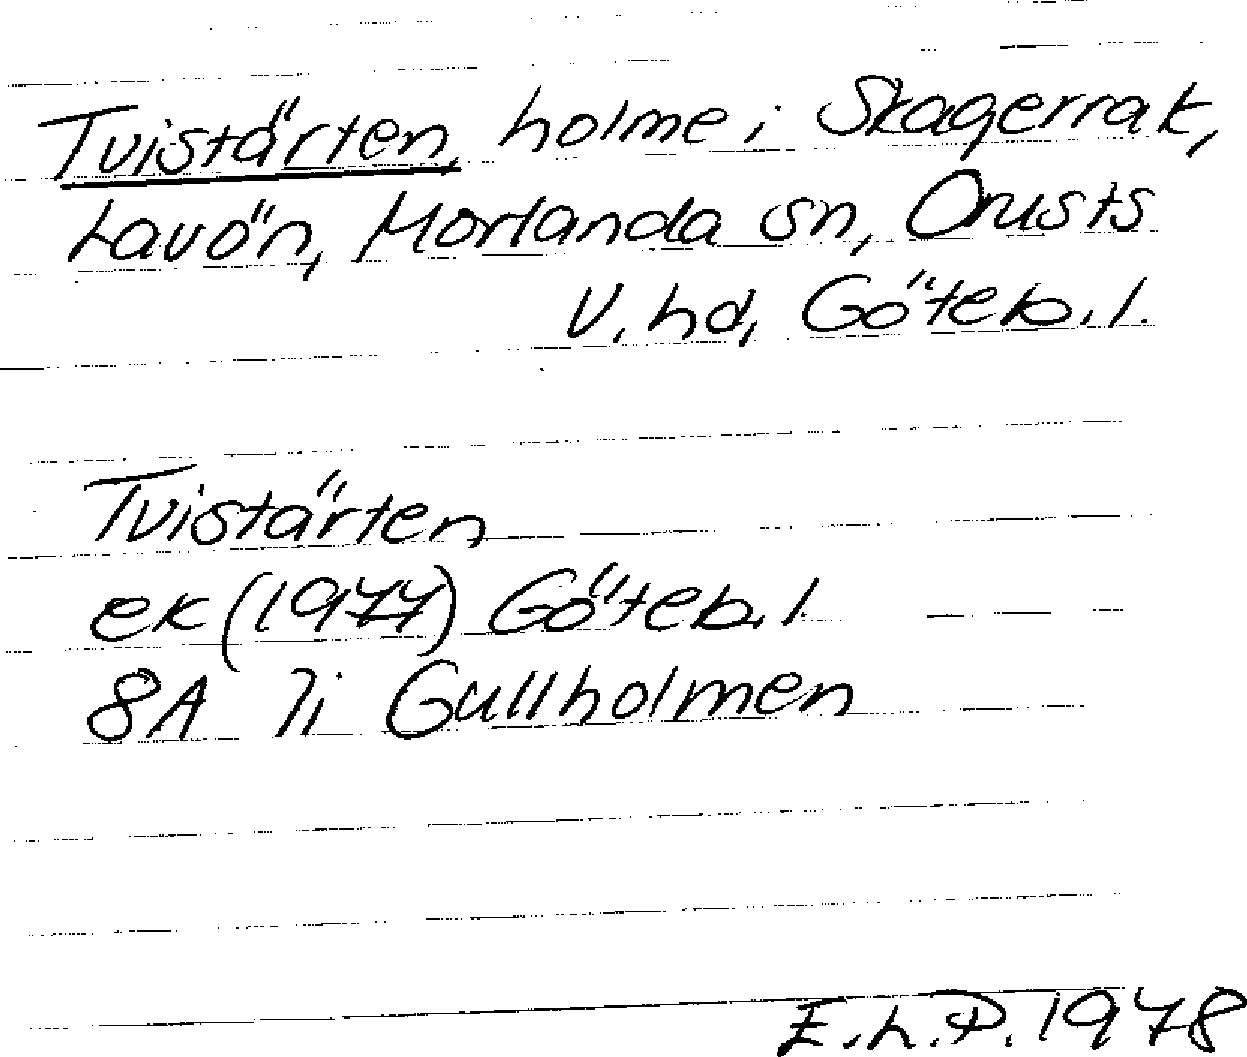 Tvistärten, holme i Skagerrak,
Lavön, Morlanda sn, Orusts
V. hd, Göteb. l.
Tvistärten
ek (1977) Göteb. l.
8A 7i Gullholmen
E.L.P. 1978